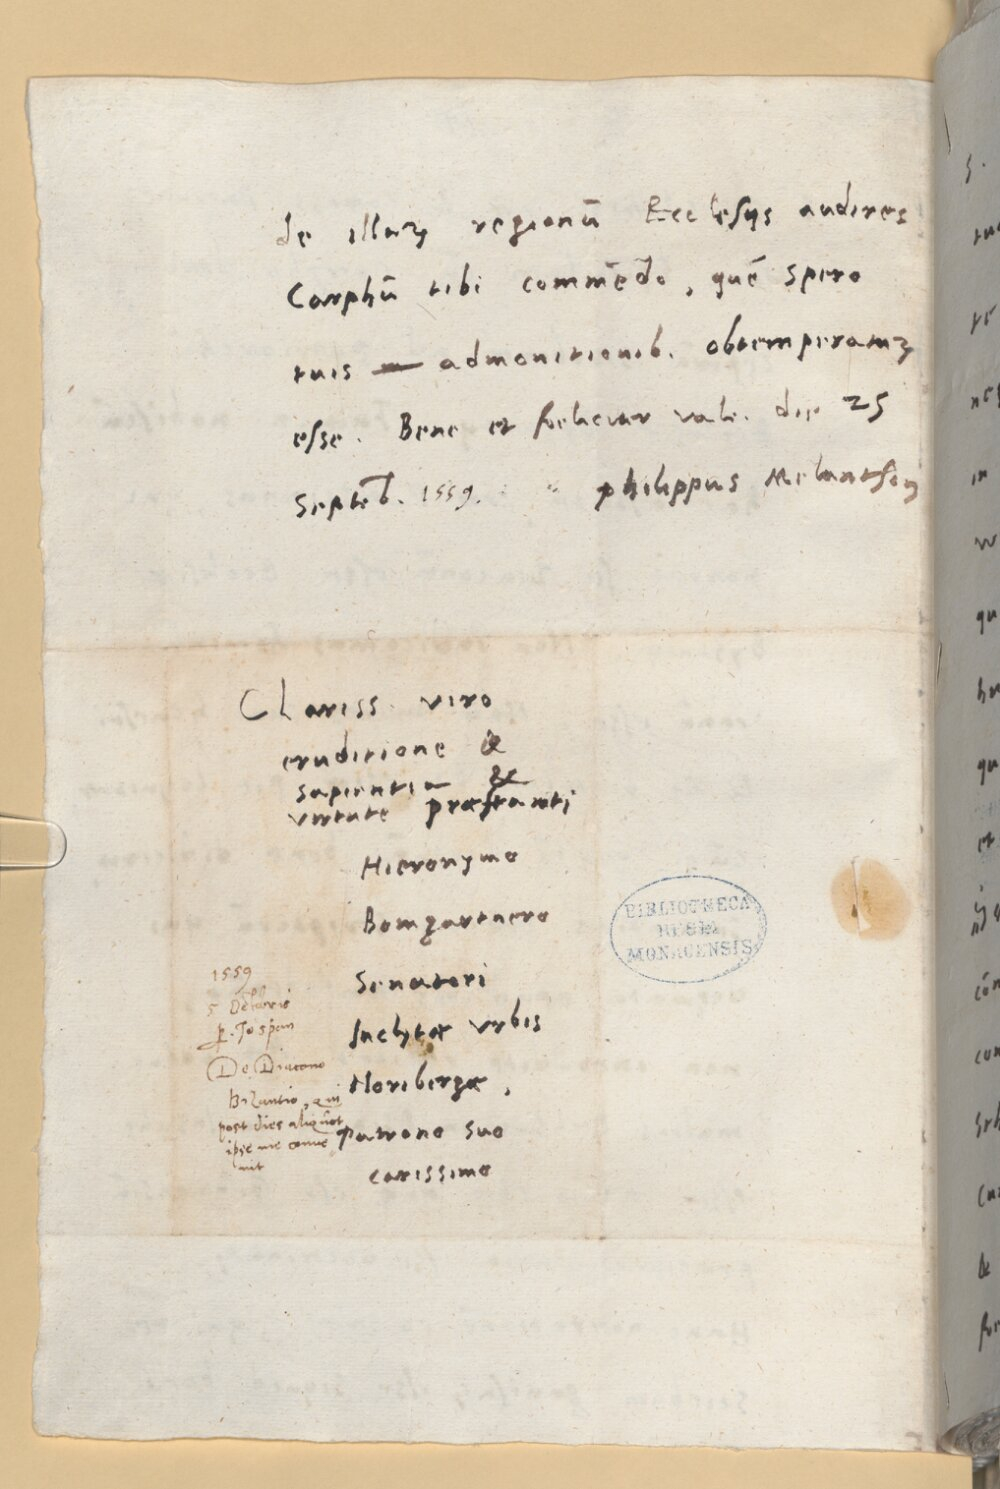 de illaꝝ regionū Ecclesijs audires
Carphū tibi commēdo, quē spero
tuis admonitionib. obtemperatuꝝ
esse. Bene et foeliciter vale. die 25
Septēb. 1559. philippus Melanthon
Clariss. viro
eruditione &
sapientia &
virtute præstanti
Hieronymo
Bomgartnero
Senatori
Inclytæ vrbis
Noribergæ,
patrono suo
carissimo
1559
5 Octobris
De Diacono
Bizantio, qui
post dies aliquot
ipse me conve
nit
BIBLIOTHECA
REGIA
MONACENSIS